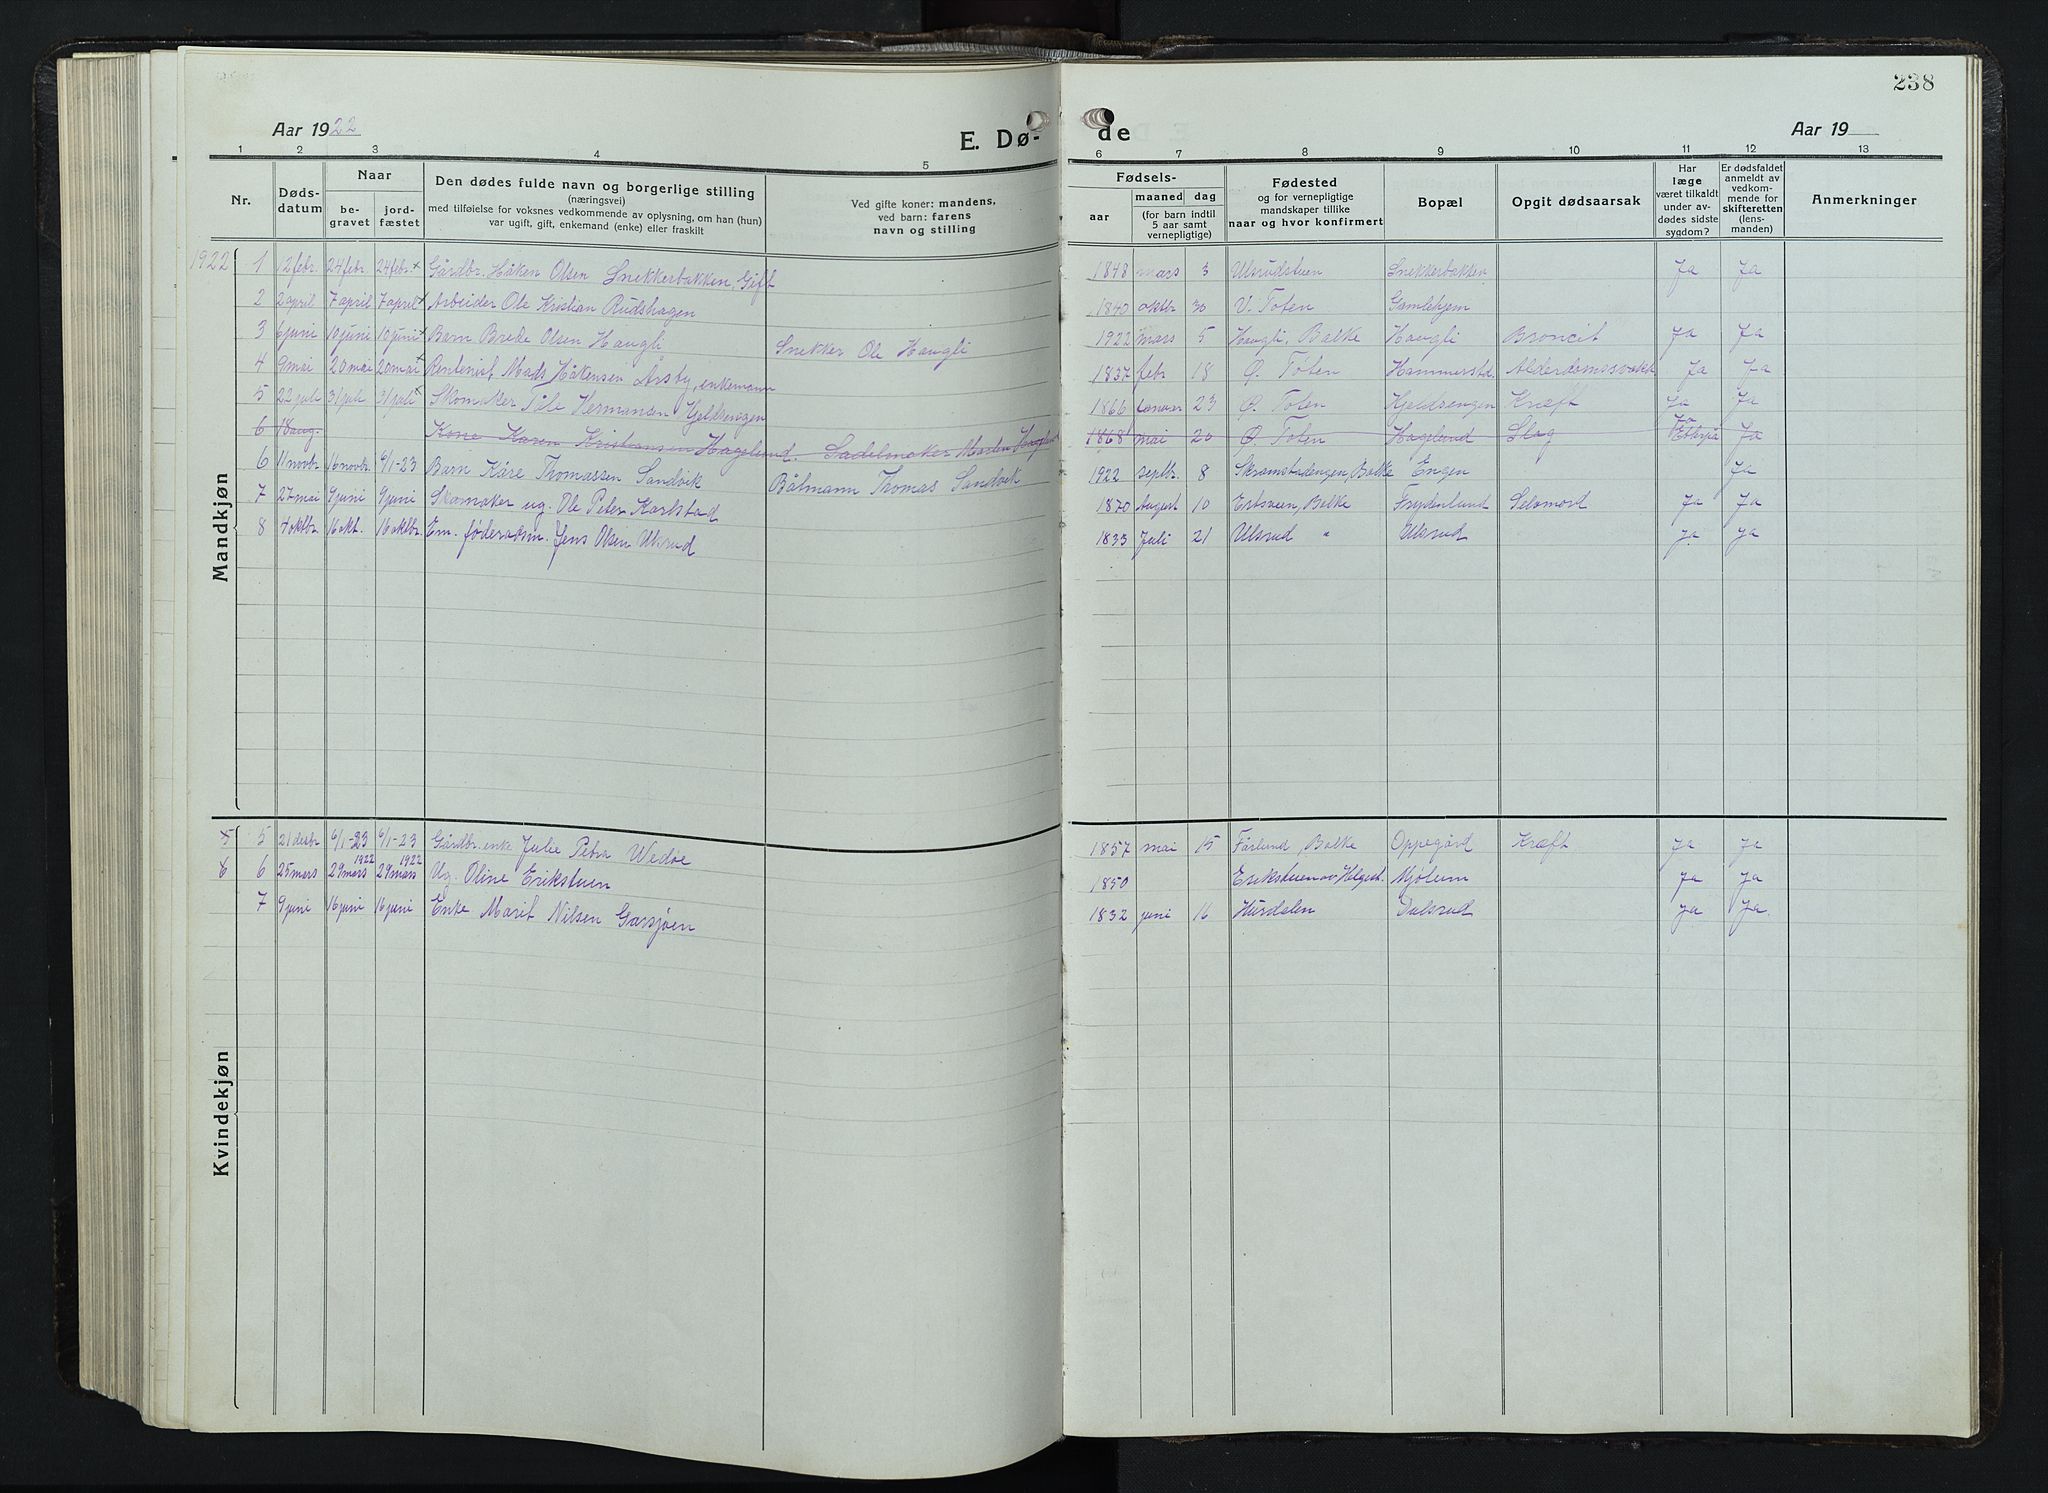 238
Aar 1922
E. Dø-
de
Aar 19
1 2 3 4 5 6 7 8 9 10 11 12 13
Nr.
Døds-
datum
Naar
be-
gravet
jord-
fæstet
Den dødes fulde navn og borgerlige stilling
(næringsvei)
med tilføielse for voksnes vedkommende av oplysning, om han (hun)
var ugift, gift, enkemand (enke) eller fraskilt
Ved gifte koner: mandens,
ved barn: farens
navn og stilling
Fødsels-
aar
maaned dag
(for barn indtil
5 aar samt
vernepligtige)
Fødested
og for vernepligtige
mandskaper tillike
naar og hvor konfirmert
Bopæl
Opgit dødsaarsak
Har
læge
været tilkaldt
under av-
dødes sidste
sygdom?
Er dødsfaldet
anmeldt av
vedkom-
mende for
skifteretten
(lens-
manden)
Anmerkninger
Mandkjøn
1922 1 12 febr. 24 febr. 24 febr. x Gårdbr. Håken Olsen Snekkerbakken, Gift 1848 mars 3 Ulsrudstuen Snekkerbakken Ja Ja
2 2 april 7 april 7 april x Arbeider Ole Kristian Rudshagen 1840 oktbr 30 V. Toten Gamlehjem
3 6 juni 10 juni 10 juni x Barn Brede Olsen Haugli Snekker Ole Haugli 1922 mars 5 Haugli, Balke Haugli Broncit Ja Ja
4 9 mai 20 mai 20 mai x Rentenist, Mads Håkensen Årsby, enkemann 1837 febr. 18 Ø. Toten Hammerstd. Alderdomssvakh. Ja Ja
5 22 juli 31 juli 31 juli x Skomaker Påle Hermansen Hjeldsengen 1866 Januar 23 Ø. Toten Kjeldsengen Kræft Ja Ja
6 18 aug. Kone Karen Kristiansen Hagelund. Sadelmaker Marten Hagelund 1868 mai 20 Ø. Toten Hagelund Slag Ja Ja
6 11 novbr. 16 novbr. 6/1-23 Barn Kåre Thomassen Sandvik Båtmann Thomas Sandvik 1922 septbr. 8 Skramstadengen, Balke Engen Ja
7 27 mai 9 juni 9 juni Skomaker ug. Ole Peter Karlstad 1870 August 10 Ertsveen, Balke Frydenlund Selvmord Ja Ja
8 4 oktbr. 16 okt. 16 oktbr. Em. føderådsm. Jens Olsen Ulsrud 1833 Juli 21 Ulsrud " Ulsrud Ja Ja
Kvindekjøn
5 5 21 desbr 6/1-23 6/1-23 Gårdbr. enke Julie Petra Wedøe 1857 mai 15 Farlund, Balke Oppegård Kræft Ja Ja
6 6 25 mars 29 mars 1922 29 mars 1922 Ug. Oline Erikstuen 1850 Erikstuen av Helgest. Mjøheim Ja Ja
7 9 juni 16 juni 16 juni Enke Marit Nilsen Garsjøen 1832 juni 16 Hurdalen Dalsrud Ja Ja.